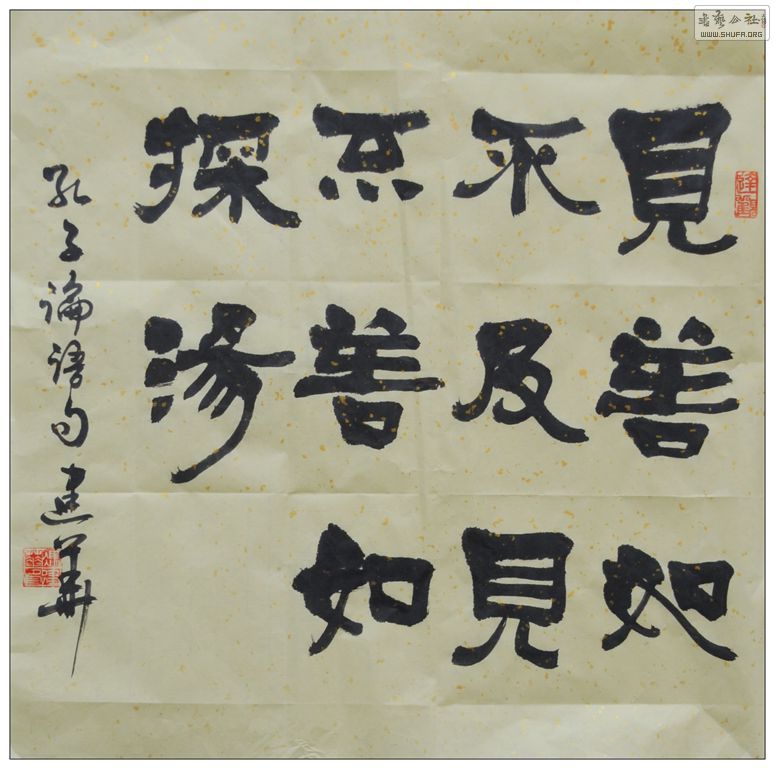 見善如
不及見
不善如
探湯
孔子論語句建華
書藝公社
WWW.SHUFA.ORG